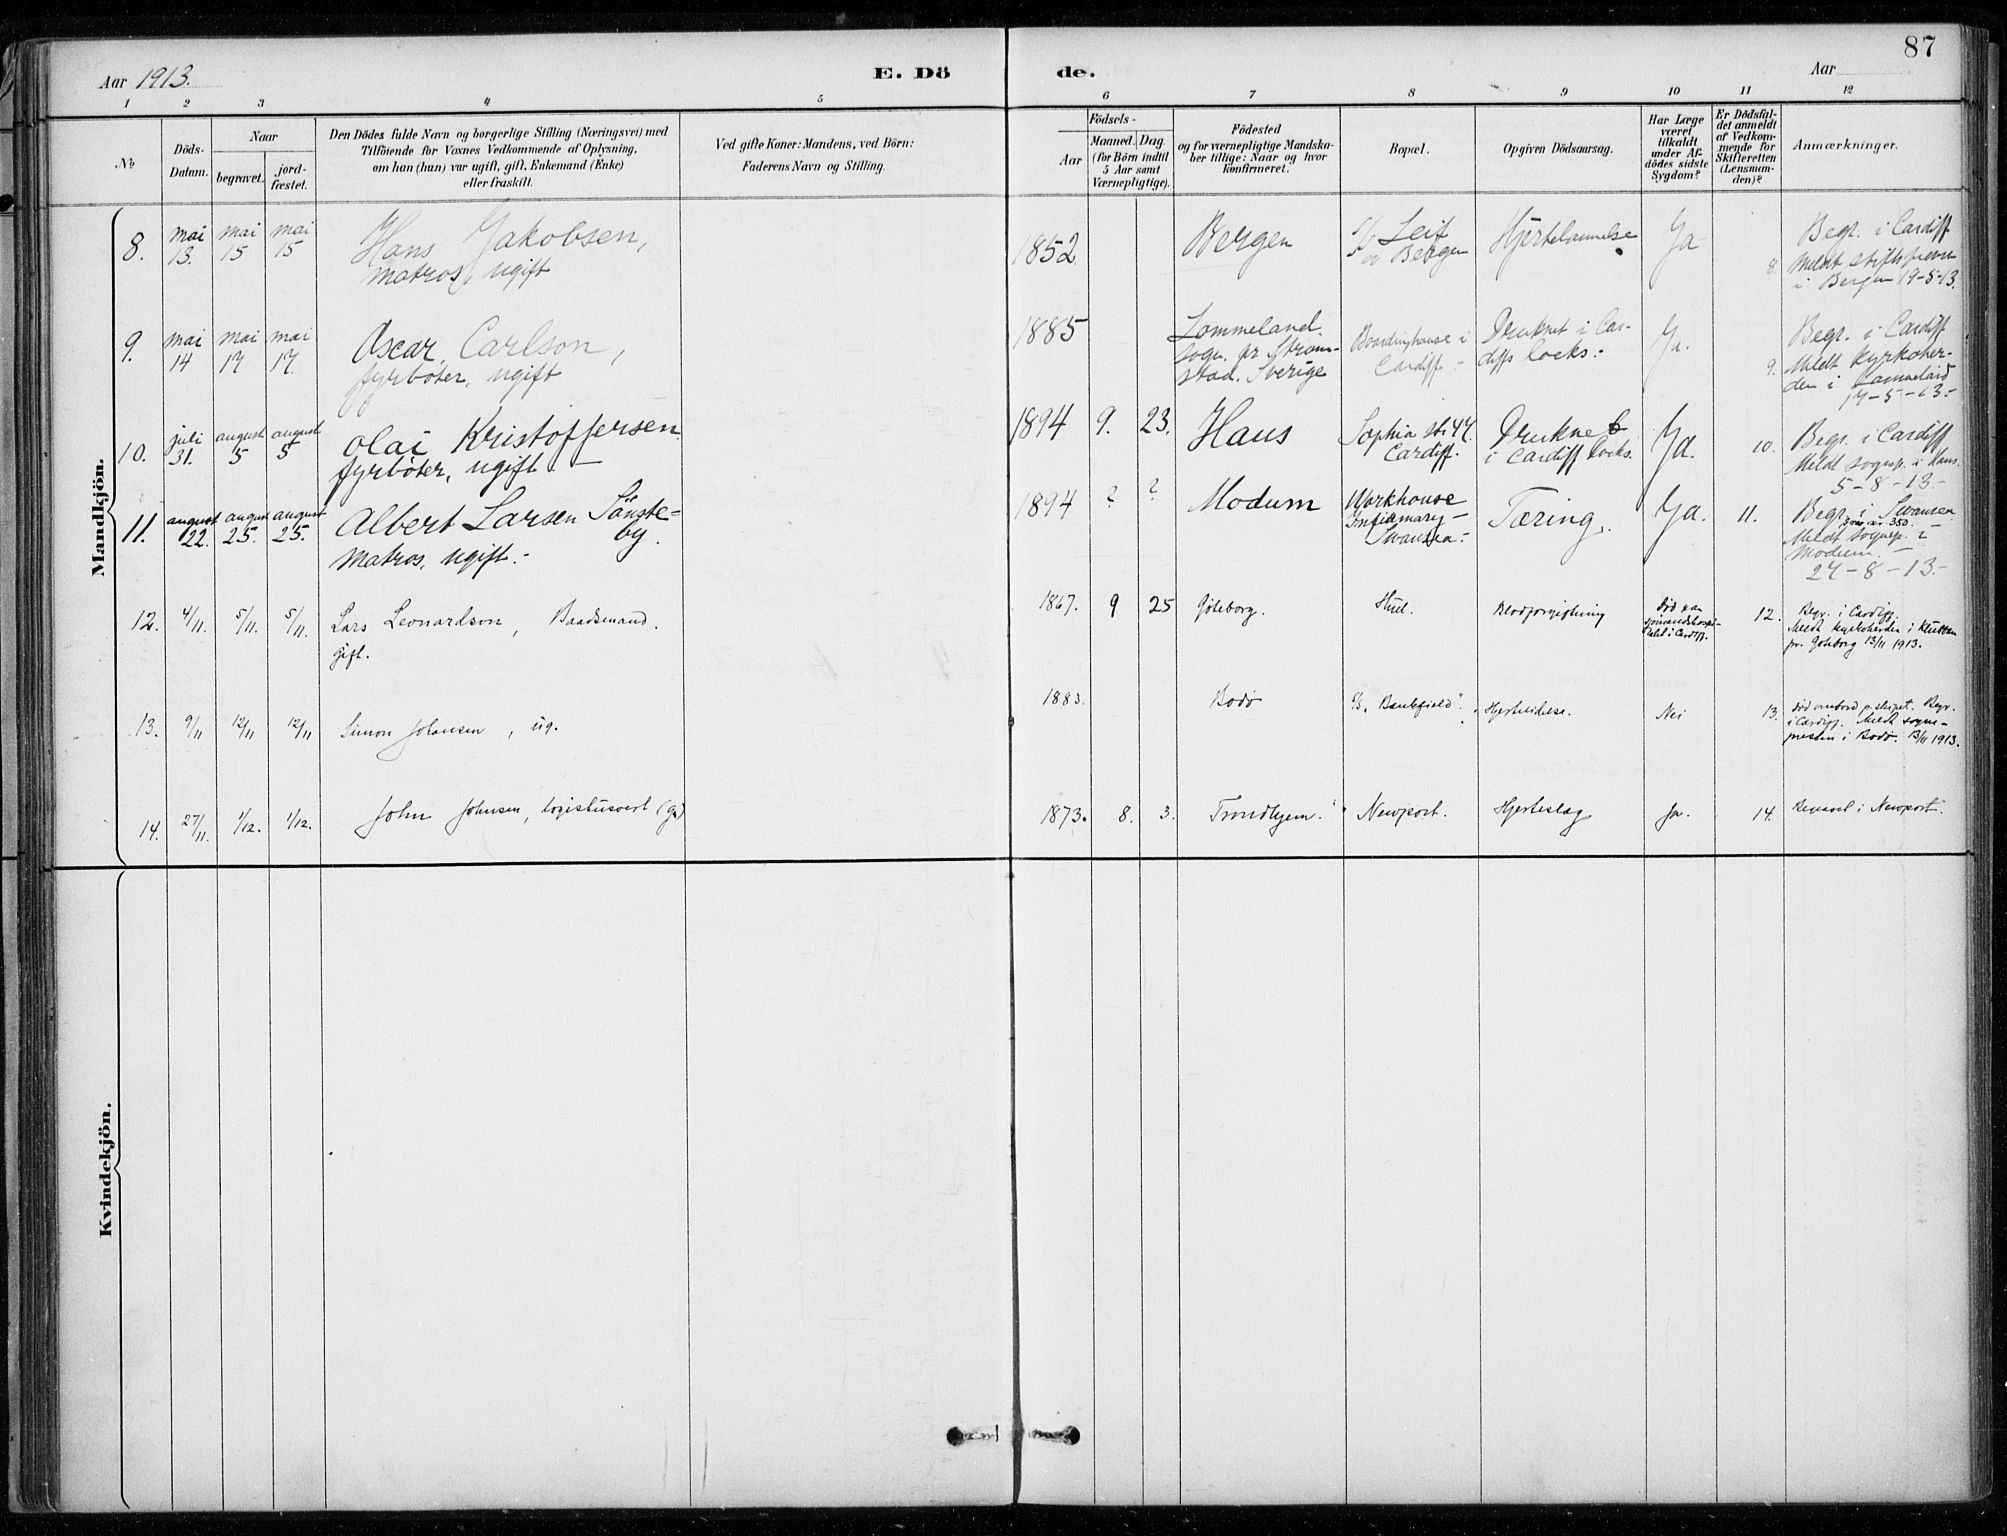 87
Aar 1913.
E. Dö de.
Aar
1 2 3 4 5 6 7 8 9 10 11 12
No
Döds-
Datum.
Naar
begravet.
jord-
fæstet.
Den Dödes fulde Navn og borgerlige Stilling (Næringsvei) med
Tilföiende for Voxnes Vedkommende af Oplysning,
om han (hun) var ugift, gift, Enkemand (Enke)
eller fraskilt.
Ved gifte Koner: Mandens, ved Börn:
Faderens Navn og Stilling.
Födsels-
Aar
Maaned. Dag.
(for Börn indtil
5 Aar samt
Værnepligtige).
Födested
og for værnepligtige Mandska-
ber tillige: Naar og hvor
konfirmeret.
Bopæl.
Opgiven Dödsaarsag.
Har Læge
været
tilkaldt
under Af-
dödes sidste
Sygdom?
Er Dödsfal-
det anmeldt
af Vedkom-
mende for
Skifteretten
(Lensman-
den)?
Anmærkninger.
Mandkjön.
8.
mai
13.
mai
15
mai
15
Hans Jakobsen,
matros, ugift
1852
Bergen
S/S Leif
av Bergen
Hjertelammelse
Ja
8.
Begr. i Cardiff
Meldt stiftsprovs
i Bergen 19-5-13.
9.
mai
14
mai
17
mai
17.
Oscar Carlson,
fyrböter, ugift
1885
Lommeland
sogn. pr Strøm-
stad. Sverige
Boardinghouse i
Cardiff -
Druknet i Car-
diffs Docks.
Ja.
9.
Begr. i Cardiff
Meldt Kyrkoher-
den i Lommeland
17-5-13.-
10.
juli
31.
august
5
august
5
Olai Kristoffersen
fyrböter, ugift. -
1894 9. 23.
Haus
Sophia str 47.
Cardiff.
Druknet
i Cardiff Docks.
Ja.
10.
Begr. i Cardiff
Meldt sognep. i Haus.
5-8-13.-
11.
august
22.
august
25.
august
25.
Albert Larsen Sönste-
by.
Matros, ugift.-
1894 ? ?
Modum
Workhouse
Infirmary-
Swansea.-
Tæring.
Ja.
11.
Begr. i Swansea
Meldt sognep. i
Modum. -
27-8-13.-
12. 4/11. 5/11. 5/11.
Lars Leonardson, Baadsmand.
gift.
1867. 9 25
Göteborg.
Hull.
Blodforgiftning
död paa
sjömandshospi-
talet i Cardiff.
12.
Begr. i Cardiff.
Meldt kyrkoherden i
pr. Göteborg 13/11 1913.
13. 9/11 12/11 12/11
Simon Johansen, ug.
1883.
Bodø
S/S. "Bankfield".
Hjertelidelse.
Nei
13.
död ombord p. skipet. Begr.
i Cardiff. Meldt sogne-
presten i Bodø. 13/11 1913.
14. 27/11. 1/12. 1/12.
John Johnsen, logishusvert (g.)
1873. 8. 3.
Trondhjem.
Newport.
Hjerteslag
Ja.
14.
Begravet i Newport.
Kvindekjön.